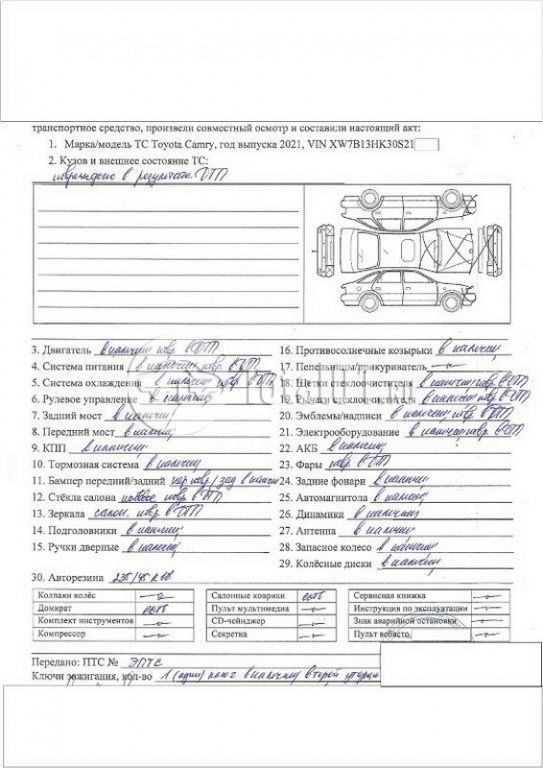 транспортное средство, произвели совместный осмотр и составили настоящий акт:
1. Марка/модель ТС Toyota Camry, год выпуска 2021, VIN XW7B13HK30S21
2. Кузов и внешнее состояние ТС:
повреждено в результате ДТП
3. Двигатель в наличии повр. в ДТП
4. Система питания в наличии повр. в ДТП
5. Система охлаждения в наличии повр. в ДТП
6. Рулевое управление в наличии
7. Задний мост в наличии
8. Передний мост в наличии
9. КПП в наличии
10. Тормозная система в наличии
11. Бампер передний/задний пер повр / зад в наличии
12. Стёкла салона лобовое повр. в ДТП
13. Зеркала салон. повр. в ДТП
14. Подголовники в наличии
15. Ручки дверные в наличии
16. Противосолнечные козырьки в наличии
17. Пепельницы/прикуриватель
18. Щетки стеклоочистителя в наличии повр. в ДТП
19. Рычаги стеклоочистит. в наличии повр. в ДТП
20. Эмблемы/надписи в наличии повр. в ДТП
21. Электрооборудование в наличии повр. в ДТП
22. АКБ в наличии
23. Фары повр. в ДТП
24. Задние фонари в наличии
25. Автомагнитола в наличии
26. Динамики в наличии
27. Антенна в наличии
28. Запасное колесо в наличии
29. Колёсные диски в наличии
30. Авторезина 235/45 R18
Колпаки колёс
Домкрат есть
Комплект инструментов
Компрессор
Салонные коврики есть
Пульт мультимедиа
CD-чейнджер
Секретка
Сервисная книжка
Инструкция по эксплуатации
Знак аварийной остановки
Пульт вебасто
Передано: ПТС № ЭПТС
Ключи зажигания, кол-во 1 (один) ключ в наличии второй утерян